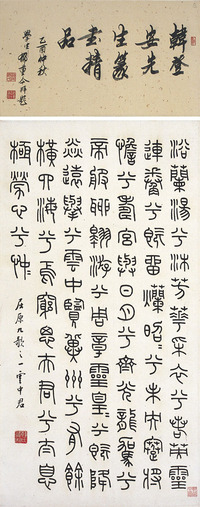 韓登
安先
生篆
書精
品
乙酉仲秋
浴蘭湯兮沐芳華采衣兮若英靈
連蜷兮既留爛昭〻兮未央蹇將
憺兮壽宮與日月兮齊光龍駕兮
帝服聊翱游兮周章靈皇〻兮既降
猋遠舉兮雲中覽冀州兮有餘
橫四海兮焉窮思夫君兮太息
極勞心兮忡〻
屈原九歌之一雲中君